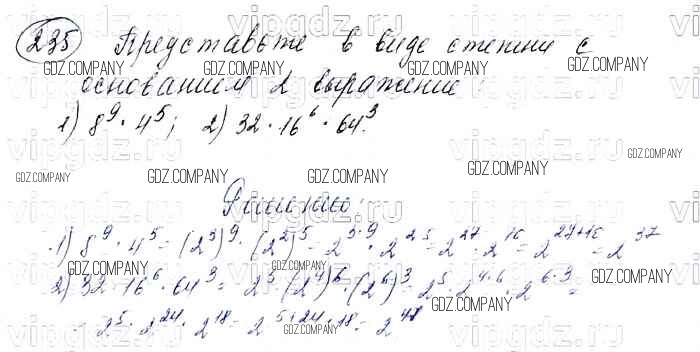 235 Представьте в виде степени с
основанием 2 выражение:
1) 8⁹ · 4⁵; 2) 32 · 16⁶ · 64³.
Решение:
1) 8⁹ · 4⁵ = (2³)⁹ · (2²)⁵ = 2³·⁹ · 2²·⁵ = 2²⁷ · 2¹⁰ = 2²⁷⁺¹⁰ = 2³⁷
2) 32 · 16⁶ · 64³ = 2⁵ · (2⁴)⁶ · (2⁶)³ = 2⁵ · 2⁴·⁶ · 2⁶·³ =
2⁵ · 2²⁴ · 2¹⁸ = 2⁵⁺²⁴⁺¹⁸ = 2⁴⁷
vipgdz.ru
GDZ.COMPANY